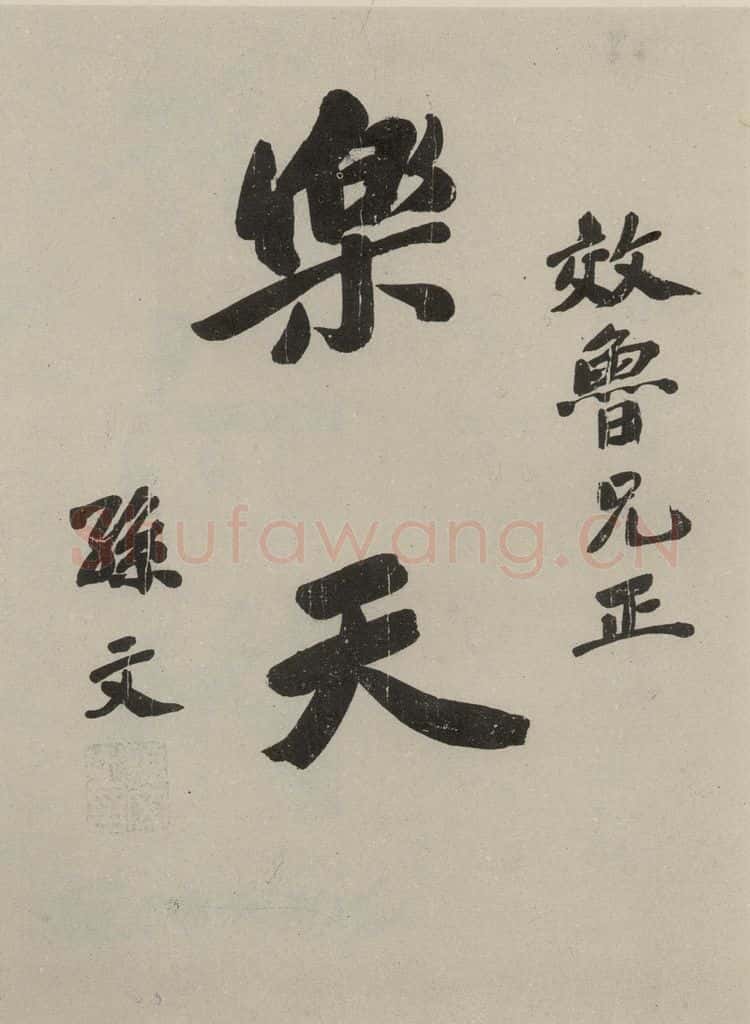 效魯兄正
樂天
孫文
Shufawang.CN